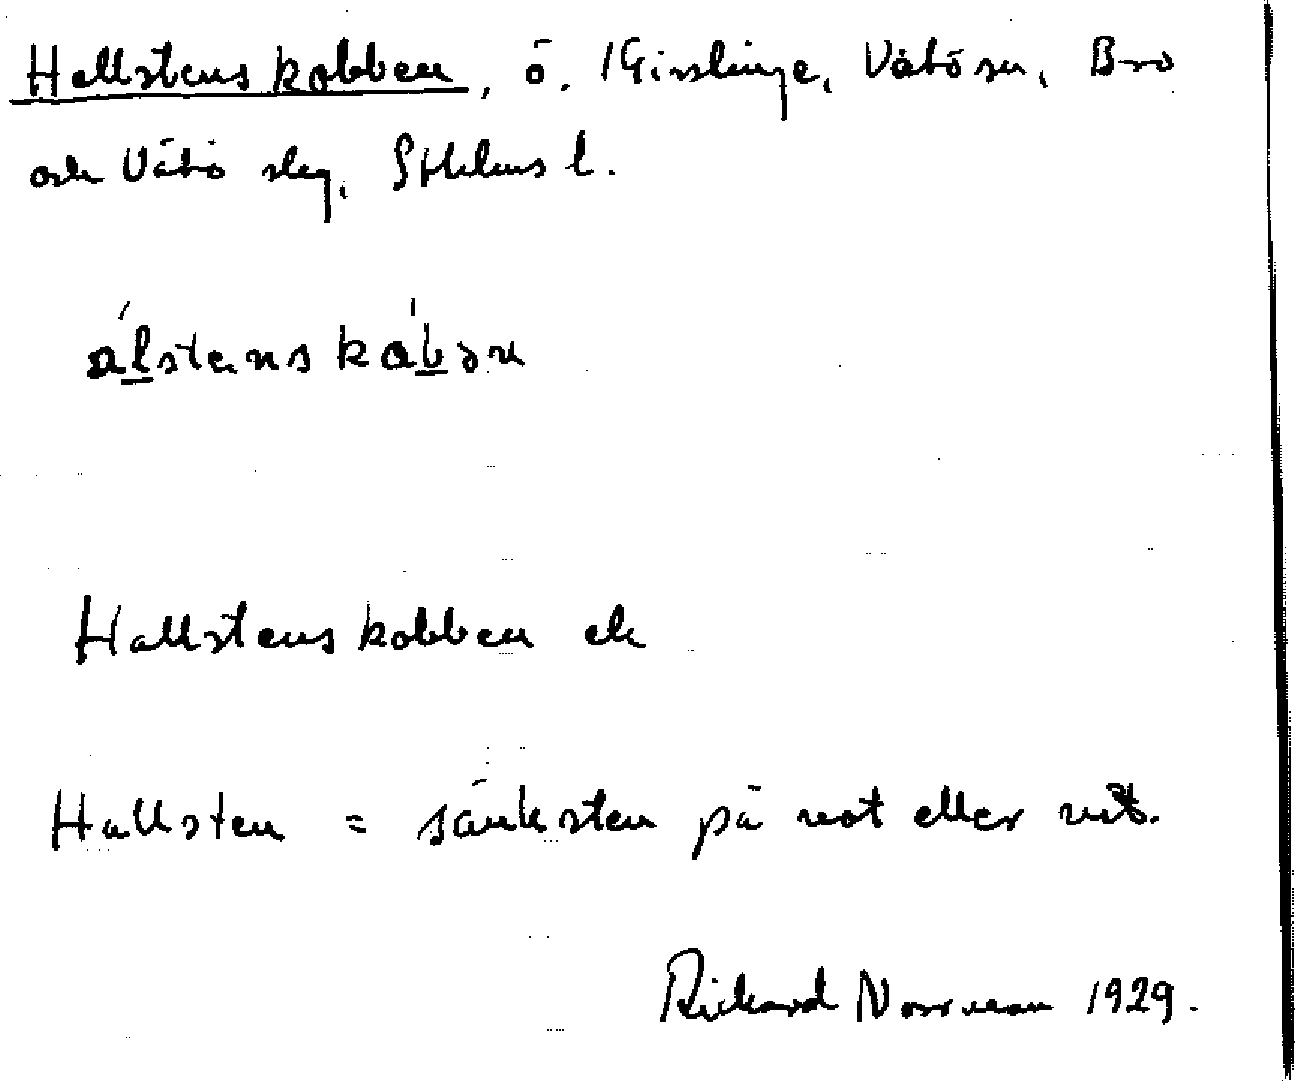 Hallstenskobben, ö. /Gisslinge, Vätösn, Bro
och Vätö slg, Sthlms l.
álstenskábən
Hallstenskobben ek
Hallsten = sänksten på not eller nät.
Rickard Norrman 1929.